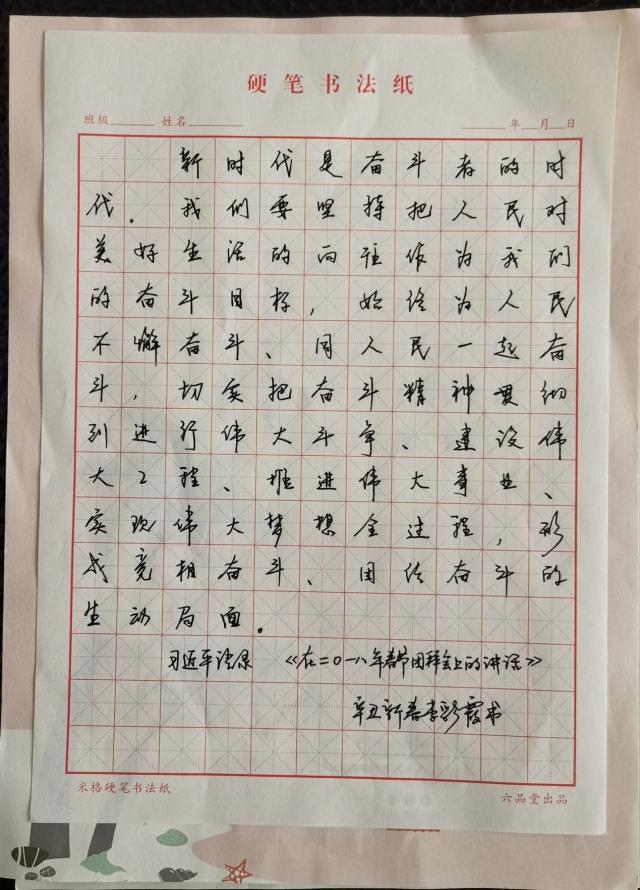 硬笔书法纸
班级 姓名 年 月 日
新时代是奋斗者的时
代。我们要坚持把人民对
美好生活的向往作为我们
的奋斗目标，始终为人民
不懈奋斗、同人民一起奋
斗，切实把奋斗精神贯彻
到进行伟大斗争、建设伟
大工程、推进伟大事业、
实现伟大梦想全过程，形
成竞相奋斗、团结奋斗的
生动局面。
习近平语录 《在二〇一八年春节团拜会上的讲话》
辛丑新春李彩霞书
米格硬笔书法纸 六品堂出品